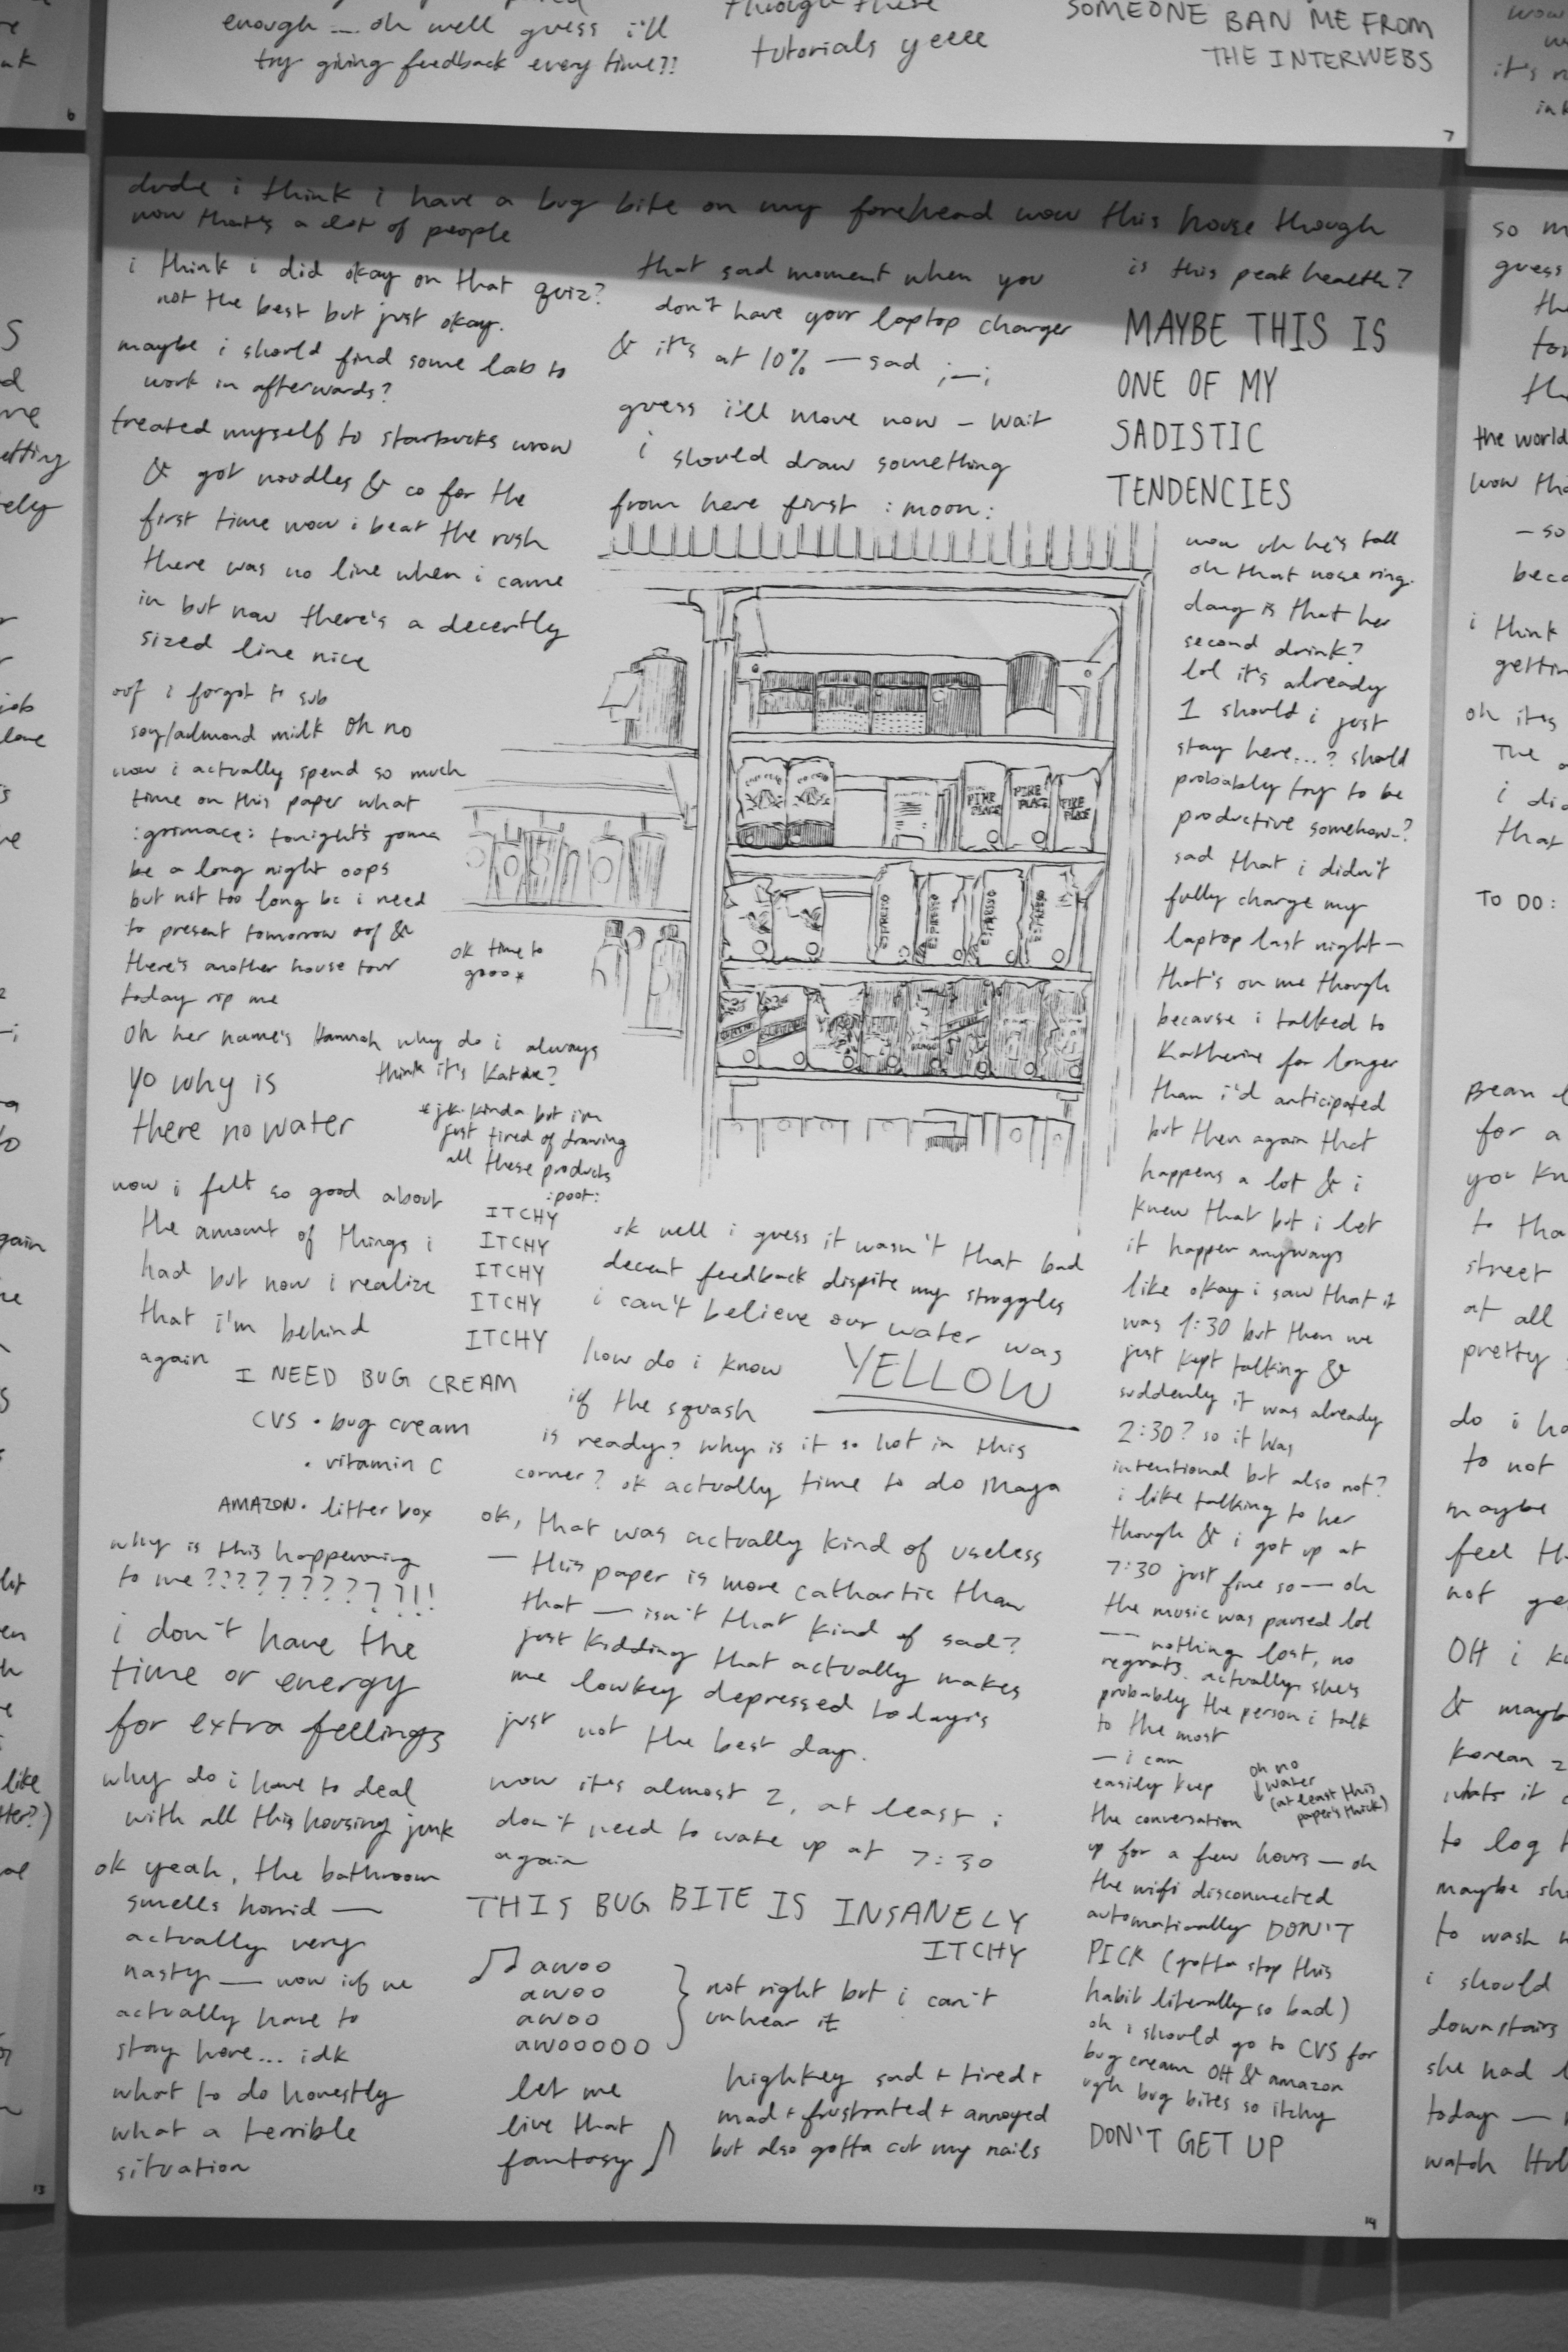 enough — oh well guess i'll
try giving feedback every time??
through these
tutorials yeeee
SOMEONE BAN ME FROM
THE INTERWEBS
6
7
dude i think i have a bug bite on my forehead wow this house though
wow that's a lot of people
i think i did okay on that quiz?
not the best but just okay.
maybe i should find some lab to
work in afterwards?
treated myself to starbucks wow
& got noodles & co for the
first time wow i beat the rush
there was no line when i came
in but now there's a decently
sized line nice
oof i forgot to sub
soy/almond milk oh no
wow i actually spend so much
time on this paper what
:grimace: tonight's gonna
be a long night oops
but not too long bc i need
to present tomorrow oof &
there's another house tour
today rip me
oh her name's Hannah why do i always
think it's Katie?
yo why is
there no water
wow i felt so good about
the amount of things i
had but now i realize
that i'm behind
again
I NEED BUG CREAM
CVS • bug cream
• vitamin C
AMAZON • litter box
why is this happening
to me??????????!!
i don't have the
time or energy
for extra feelings
why do i have to deal
with all this housing junk
ok yeah, the bathroom
smells horrid —
actually very
nasty — now if we
actually have to
stay here... idk
what to do honestly
what a terrible
situation
that sad moment when you
don't have your laptop charger
& it's at 10% — sad ;—;
guess i'll move now – wait
i should draw something
from here first :moon:
PIKE
PLACE
PIKE
PLACE
PIKE
PLACE
ESPRESSO
ESPRESSO
ESPRESSO
ESPRESSO
ok time to
gooo*
*jk kinda but i'm
just tired of drawing
all these products
:poot:
ITCHY
ITCHY
ITCHY
ITCHY
ITCHY
ok well i guess it wasn't that bad
decent feedback dispite my struggles
i can't believe our water was
YELLOW
how do i know
if the squash
is ready? why is it so hot in this
corner? ok actually time to do Maya
ok, that was actually kind of useless
— this paper is more cathartic than
that — isn't that kind of sad?
just kidding that actually makes
me lowkey depressed today's
just not the best day.
wow it's almost 2, at least i
don't need to wake up at 7:30
again
THIS BUG BITE IS INSANELY
ITCHY
♫ awoo
awoo
awoo
awooooo
} not right but i can't
unhear it
let me
live that
fantasy ♪
highkey sad + tired +
mad + frustrated + annoyed
but also gotta cut my nails
is this peak health?
MAYBE THIS IS
ONE OF MY
SADISTIC
TENDENCIES
wow oh he's tall
oh that nose ring.
dang is that her
second drink?
lol it's already
1 should i just
stay here...? should
probably try to be
productive somehow–?
sad that i didn't
fully charge my
laptop last night—
that's on me though
because i talked to
Katherine for longer
than i'd anticipated
but then again that
happens a lot & i
knew that but i let
it happen anyways
like okay i saw that it
was 1:30 but then we
just kept talking &
suddenly it was already
2:30? so it was
intentional but also not?
i like talking to her
though & i got up at
7:30 just fine so — oh
the music was paused lol
—— nothing lost, no
regrats. actually she's
probably the person i talk
to the most
— i can
easily keep
the conversation
oh no
↓ water
(at least this
paper's thick)
up for a few hours — oh
the wifi disconnected
automatically DON'T
PICK (gotta stop this
habit literally so bad)
oh i should go to CVS for
bug cream OH & amazon
ugh bug bites so itchy
DON'T GET UP
14
13
guess
the world
wow
– so
i think
oh it's
TO DO:
Bean
for a
street
at all
pretty
to not
maybe
not
OH i
& maybe
Korean
to log
to wash
i should
downstairs
she had
today —
watch